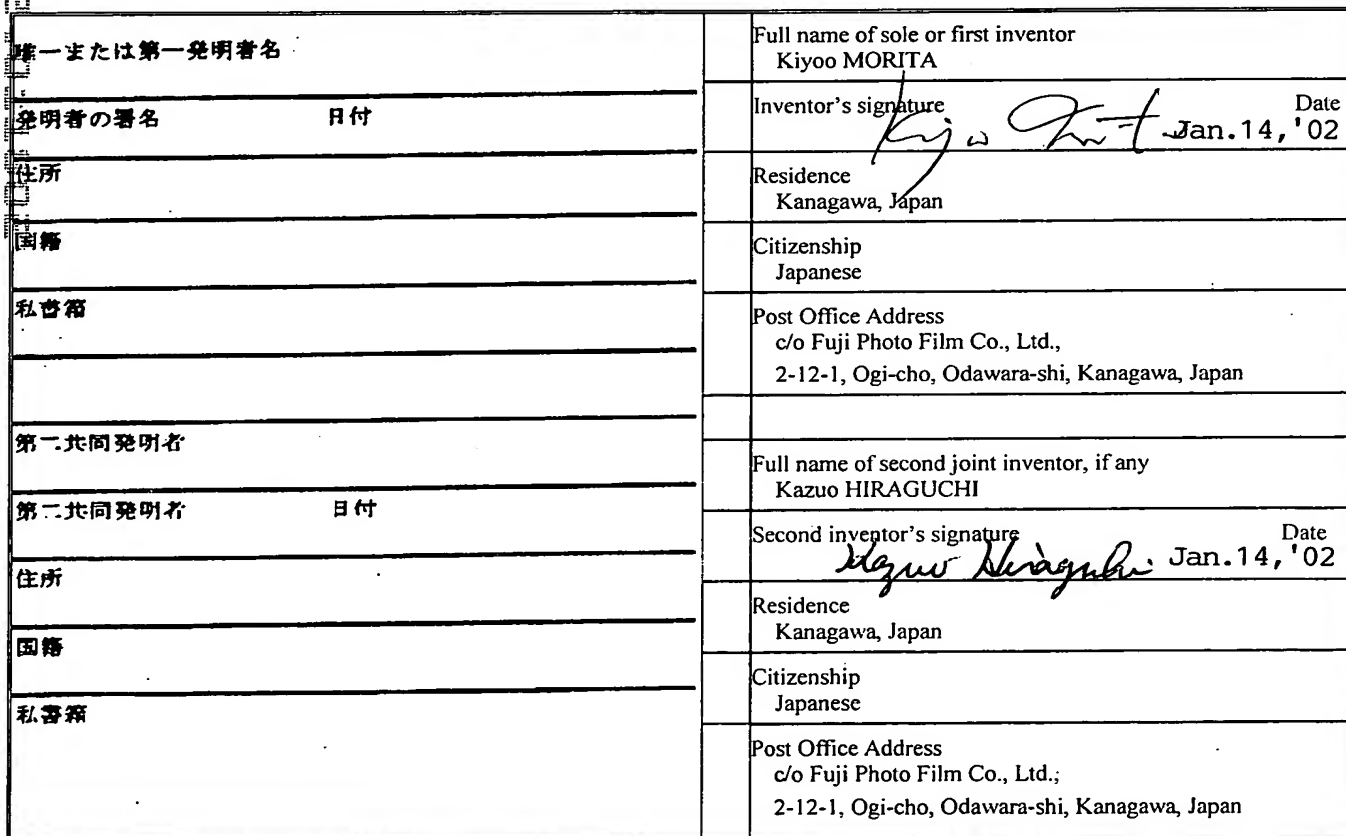 唯一または第一発明者名
発明者の署名 日付
住所
国籍
私書箱
第二共同発明者
第二共同発明者 日付
住所
国籍
私書箱
Full name of sole or first inventor
Kiyoo MORITA
Inventor's signature Date
Jan.14,'02
Residence
Kanagawa, Japan
Citizenship
Japanese
Post Office Address
c/o Fuji Photo Film Co., Ltd.,
2-12-1, Ogi-cho, Odawara-shi, Kanagawa, Japan
Full name of second joint inventor, if any
Kazuo HIRAGUCHI
Second inventor's signature Date
Kazuo Hiraguchi Jan.14,'02
Residence
Kanagawa, Japan
Citizenship
Japanese
Post Office Address
c/o Fuji Photo Film Co., Ltd.,
2-12-1, Ogi-cho, Odawara-shi, Kanagawa, Japan